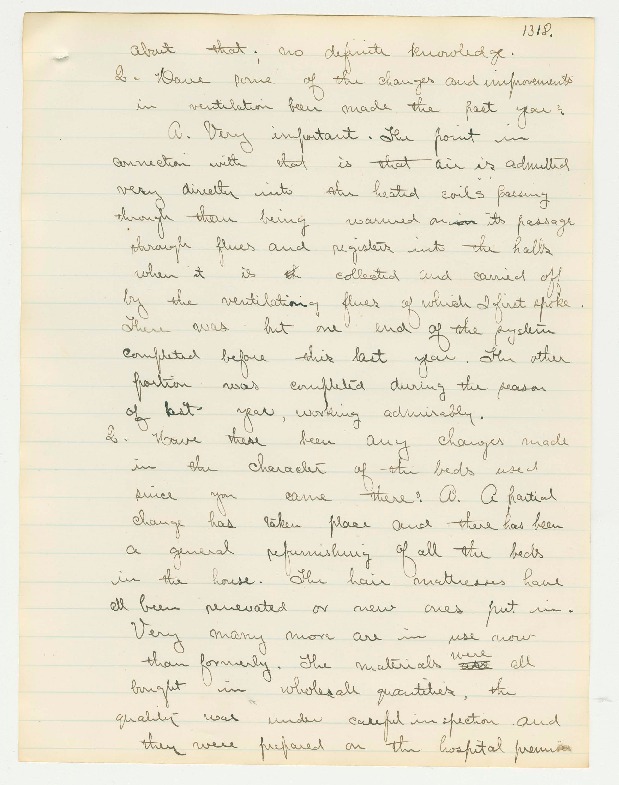 1318.
about that; no definite knowledge.
Q. Have some of the changes and improvements
in ventilation been made the past year?
A. Very important. The point in
connection with that is that air is admitted
very directly into the heated coils passing
through them being warmed on in its passage
through flues and registers into the halls
when it is collected and carried off
by the ventilating flues of which I first spoke.
There was but one end of the system
completed before this last year. The other
portion was completed during the season
of last year, working admirably.
Q. Have these been any changes made
in the character of the beds used
since you came there? A. A partial
change has taken place and there has been
a general refurnishing of all the beds
in the house. The hair mattresses have
all been renovated or new ones put in.
Very many more are in use now
than formerly. The materials are were all
bought in wholesale quantities, the
quality was under careful inspection and
they were prepared on the hospital premise